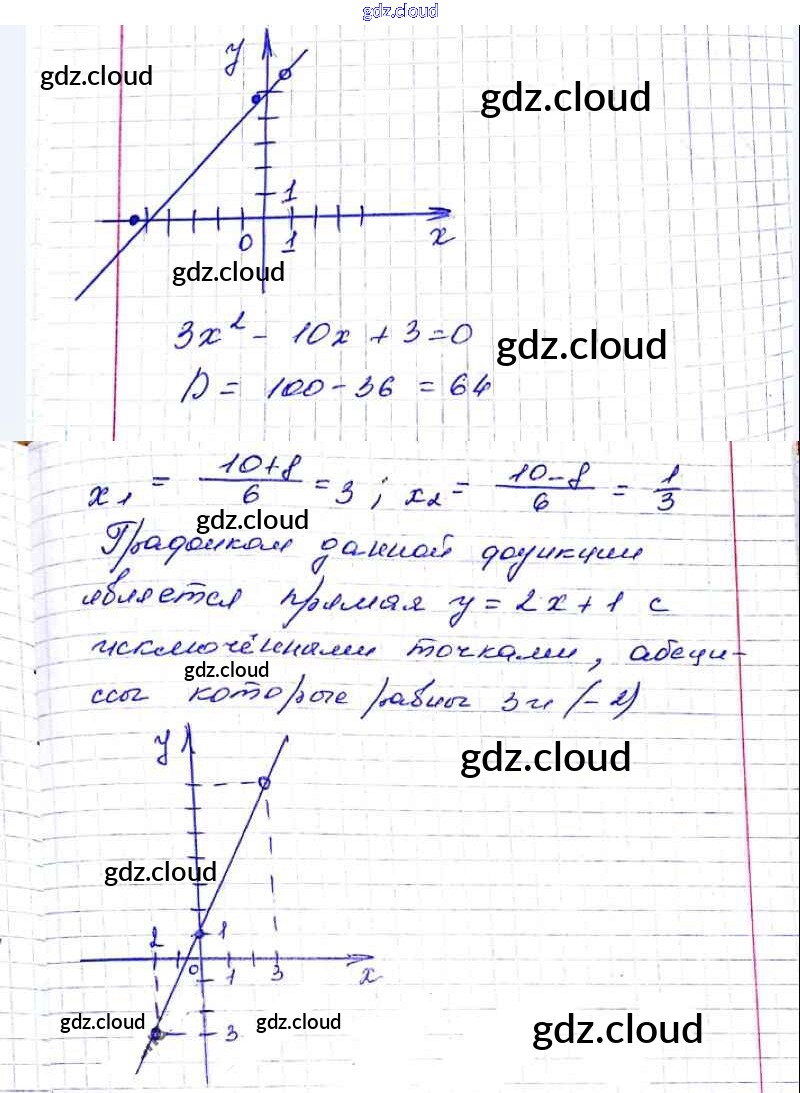 gdz.cloud
y
gdz.cloud
gdz.cloud
1
0 1 x
gdz.cloud
3x² - 10x + 3 = 0
gdz.cloud
D = 100 - 36 = 64
x₁ = (10+8)/6 = 3 ; x₂ = (10-8)/6 = 1/3
gdz.cloud
Графиком данной функции
является прямая y = 2x + 1 с
исключёнными точками, абсци-
gdz.cloud
ссы которые равны 3 и (-2)
y
gdz.cloud
gdz.cloud
2 1
0 1 3 x
gdz.cloud 3 gdz.cloud
gdz.cloud